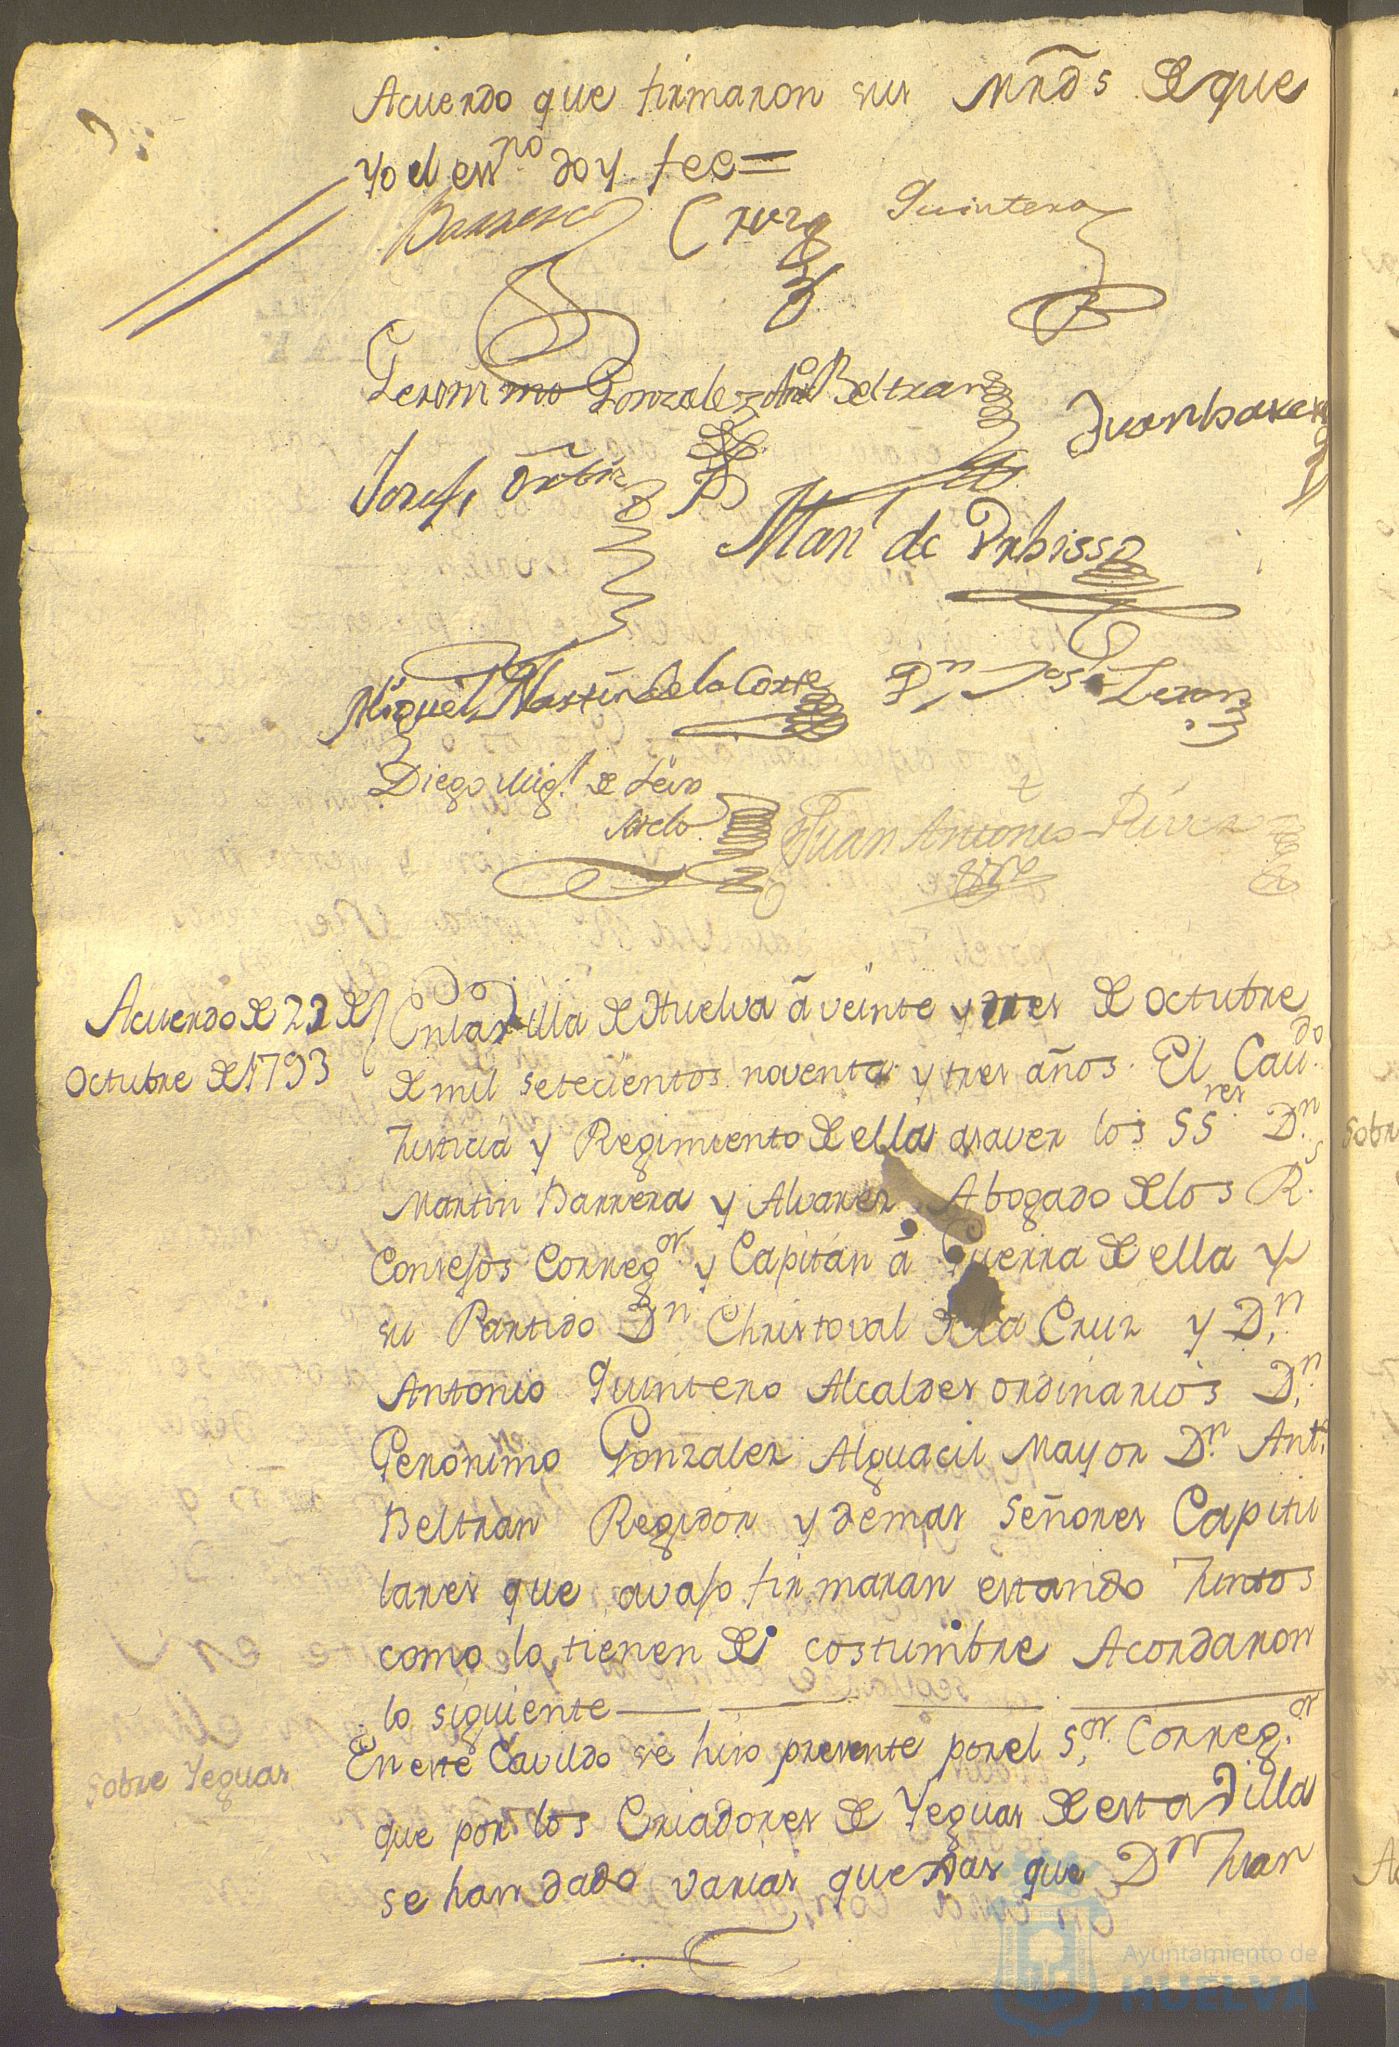 Acuerdo que firmaron sus Mrds de que
yo el essno doy fee =
Barrera Cruz Quintero
Geronimo Gonzalez Antº Beltran Juan bare
Josef Orta
Man de Urbissa
Miguel Martin de la Corte Dn Jose Leron
Diego Migl de Leiva
Melo Juan Antonio River
Acuerdo de 23 de
Octubre de 1793
En la Villa de Huelva â veinte y tres de octubre
de mil setecientos noventa y tres años. El Cavdo
Justicia y Regimiento de ella asaver los SSres Dn
Martin Barrera y Alvarez Abogado de los Rs
Consejos Corregor y Capitan â Guerra de ella y
su Partido Dn Christoval de la Cruz y Dn
Antonio Quintero Alcaldes ordinarios Dn
Geronimo Gonzalez Alguacil Mayor Dn Antº
Beltran Regidor y demas señores Capitu
lares que avajo firmaran estando Juntos
como lo tienen de costumbre Acordaron
lo siguiente
Sobre Yeguas
En este Cavildo se hizo presente por el Sor Corregor
que por los Criadores de Yeguas de esta Villa
se han dado varias quejas que Dn Juan
Sobr
Ayuntamiento de
HUELVA